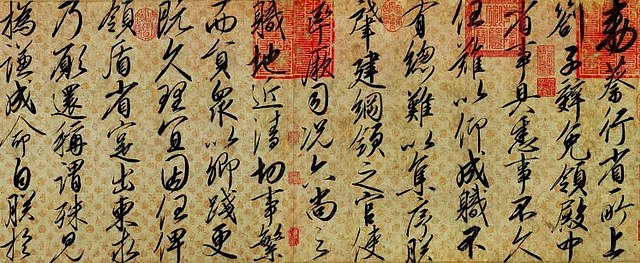 勑蔡行省所上
劄子辭免領殿中
省事具悉事不久
任難以仰成職不
有總難以集序朕
肇建綱領之官使
率厥司況六尚之
職地近清切事繁
而員衆以卿踐更
既久理宜因任俾
領盾省寔出柬求
乃願還稱謂殊見
撝謙成命自朕於